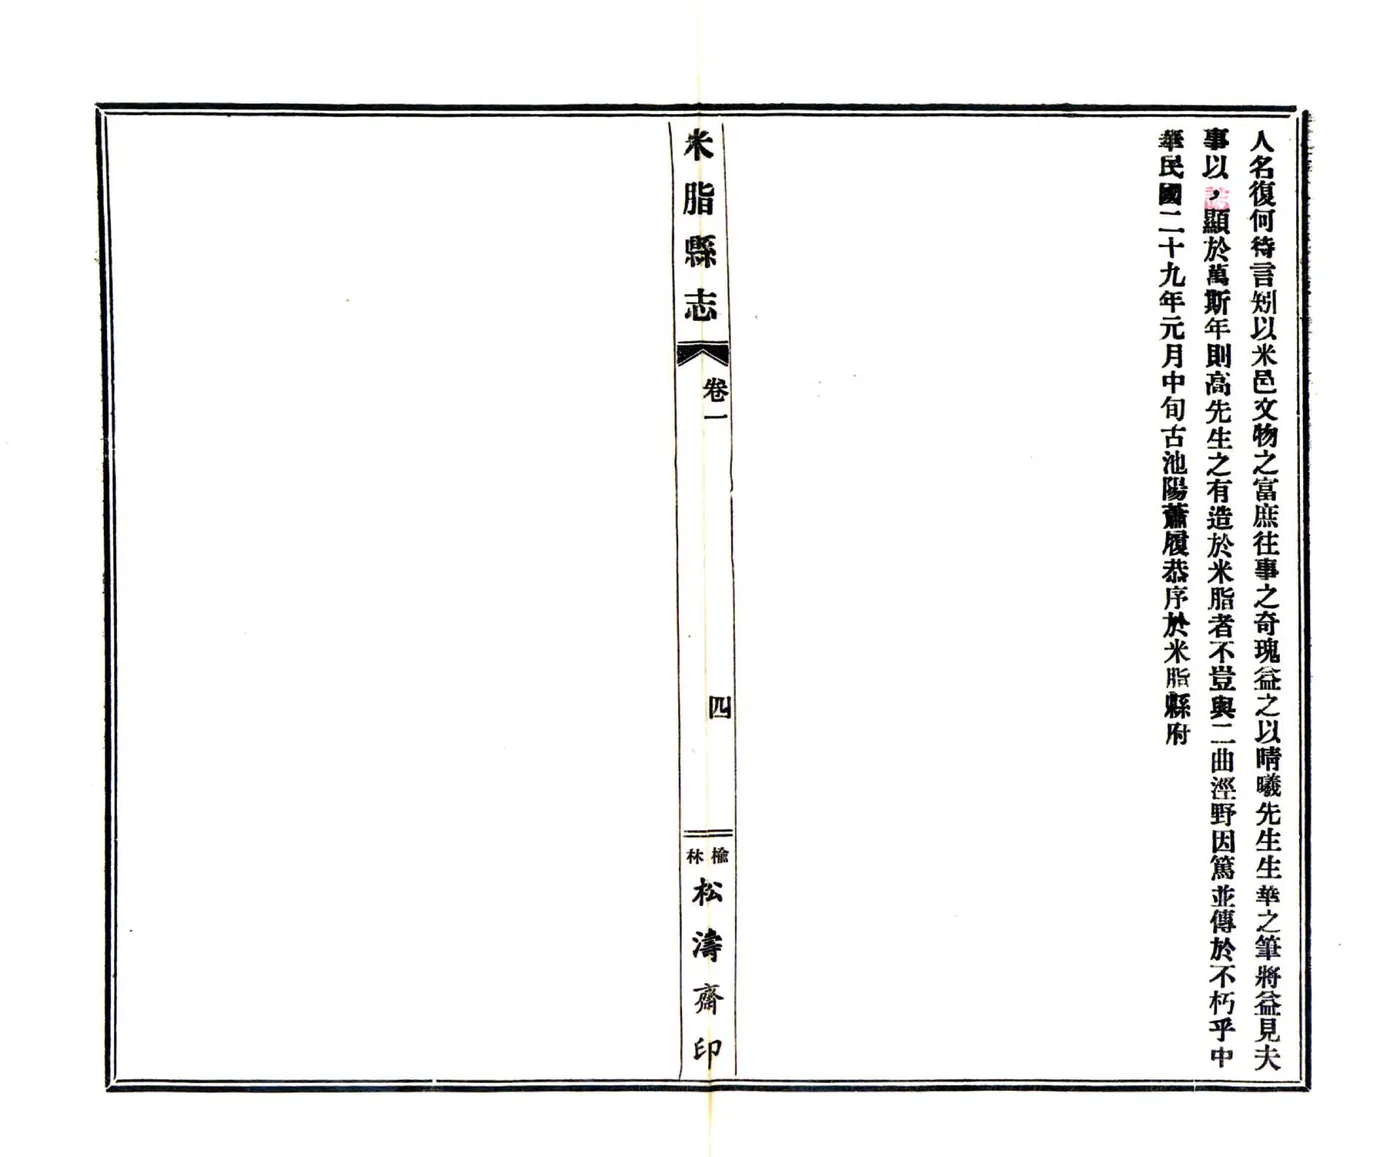 人名復何待言矧以米邑文物之富庶往事之奇瑰益之以晴曦先生生華之筆將益見夫
事以誌,顯於萬斯年則高先生之有造於米脂者不豈與二曲涇野因篤並傳於不朽乎中
華民國二十九年元月中旬古池陽蕭履恭序於米脂縣府
米脂縣志
卷一
四
榆林
松濤齋印